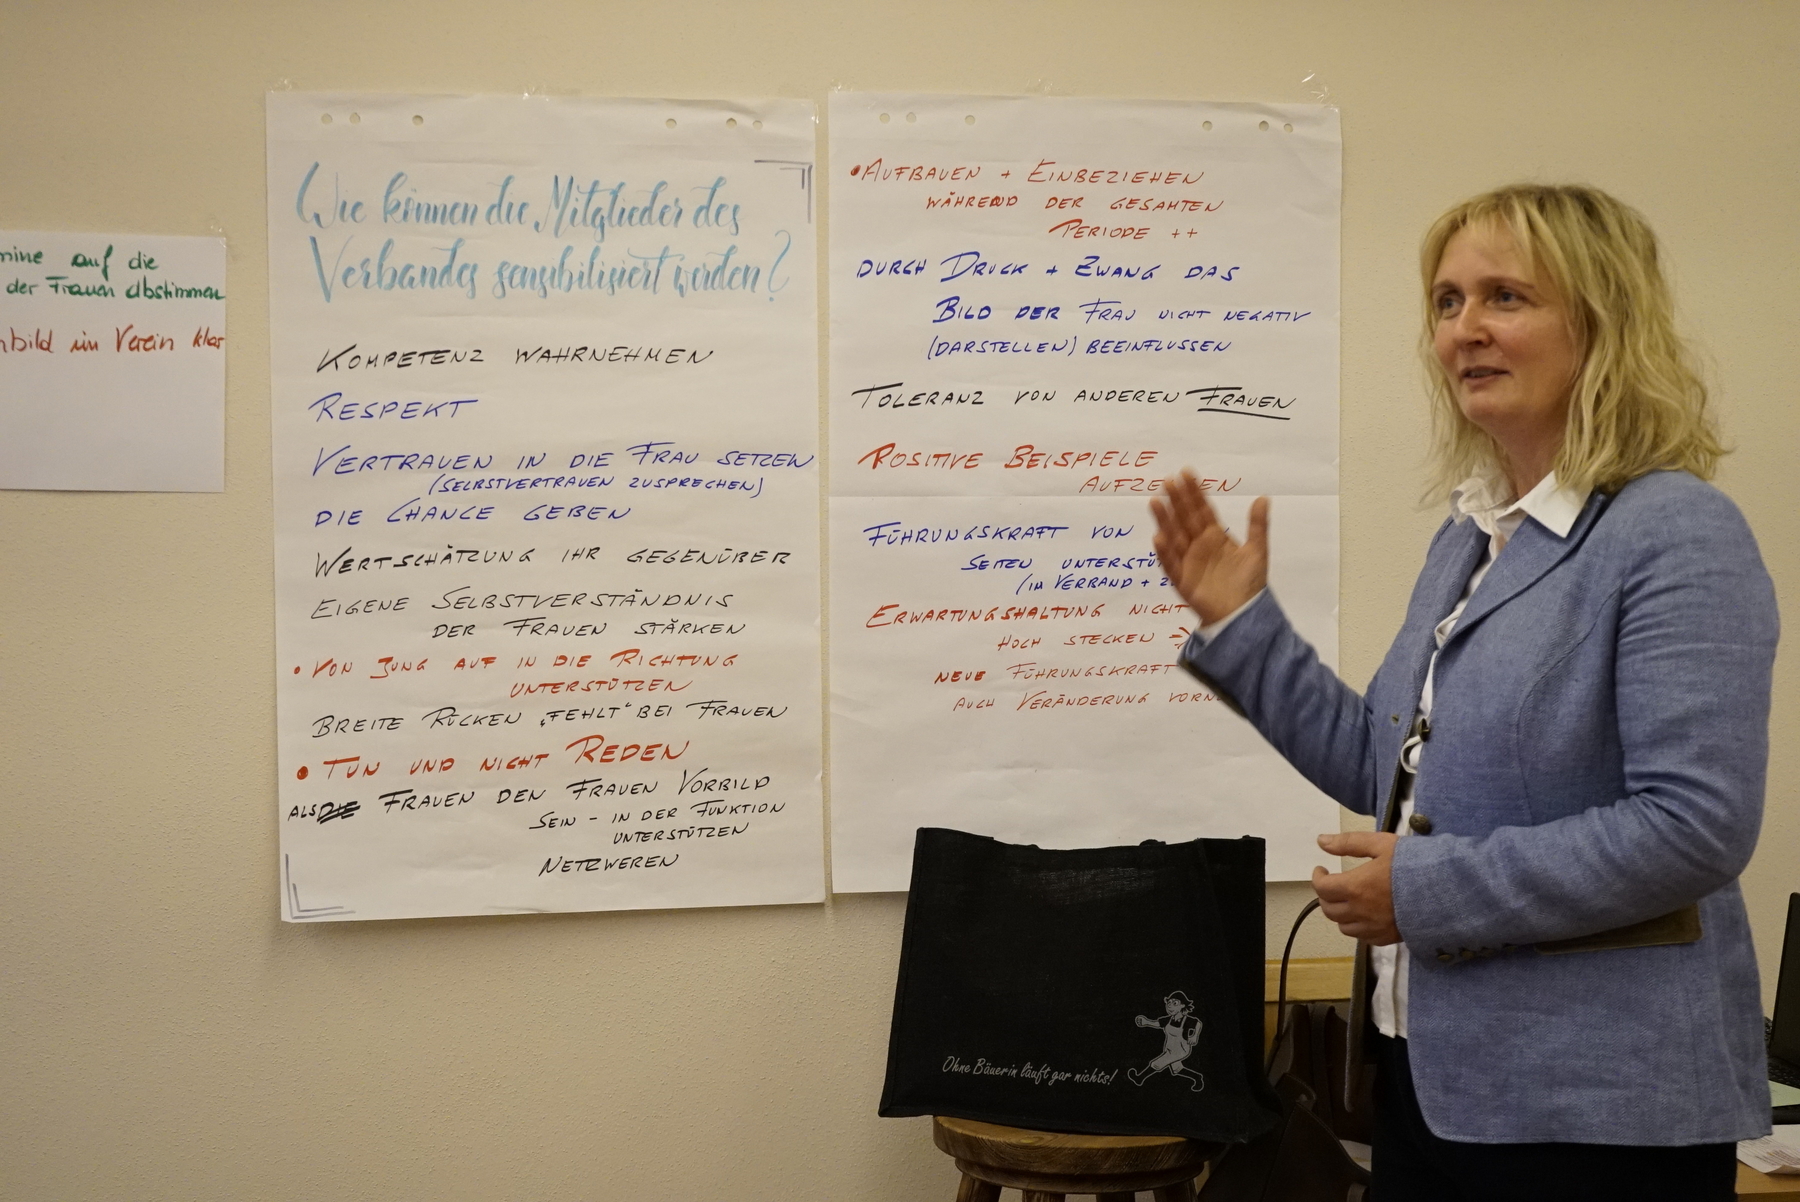 auf die
der Frauen abstimmen
im Verein klar
Wie können die Mitglieder des
Verbandes sensibilisiert werden?
KOMPETENZ WAHRNEHMEN
RESPEKT
VERTRAUEN IN DIE FRAU SETZEN
(SELBSTVERTRAUEN ZUSPRECHEN)
DIE CHANCE GEBEN
WERTSCHÄTZUNG IHR GEGENÜBER
EIGENE SELBSTVERSTÄNDNIS
DER FRAUEN STÄRKEN
• VON JUNG AUF IN DIE RICHTUNG
UNTERSTÜTZEN
BREITE RÜCKEN „FEHLT“ BEI FRAUEN
• TUN UND NICHT REDEN
ALS FRAUEN DEN FRAUEN VORBILD
SEIN - IN DER FUNKTION
UNTERSTÜTZEN
NETZWEREN
• AUFBAUEN + EINBEZIEHEN
WÄHREND DER GESAMTEN
PERIODE ++
DURCH DRUCK + ZWANG DAS
BILD DER FRAU NICHT NEGATIV
(DARSTELLEN) BEEINFLUSSEN
TOLERANZ VON ANDEREN FRAUEN
POSITIVE BEISPIELE
FÜHRUNGSKRAFT VON
SEITEN
(IM VERBAND +
ERWARTUNGSHALTUNG NICHT
HOCH STECKEN →
NEUE FÜHRUNGSKRAFT
AUCH VERÄNDERUNG
Ohne Bäuerin läuft gar nichts!